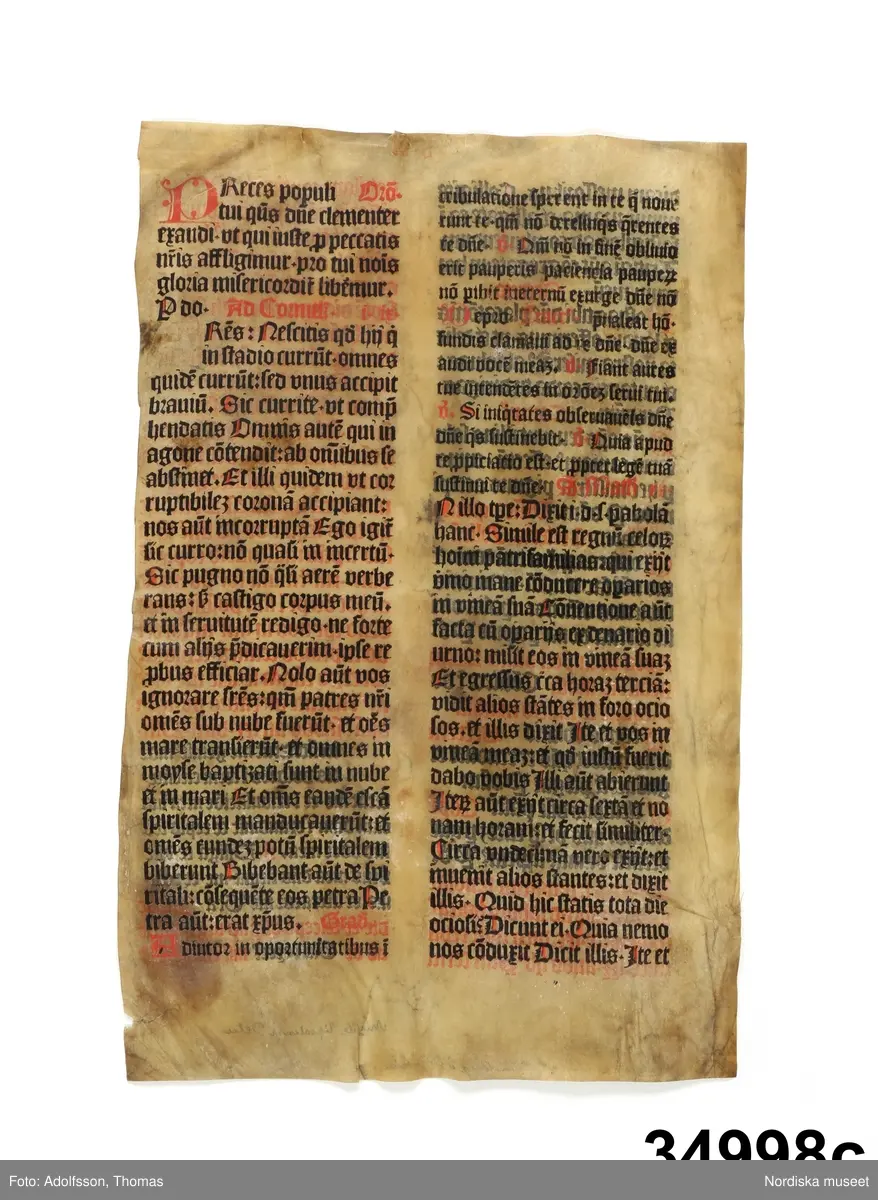 PReces populi Orō.
tui qūs dn̄e clementer
exaudi·vt qui iuste ꝓ peccatis
nr̄is affligimur·pro tui noīs
gloria misericordit̄ libēmur.
P do. Ad Corint̄
Frēs: Nescitis qd̄ hij q̄
in stadio currūt·omnes
quidē currūt:sed vnus accipit
brauiū. Sic currite·vt comp̄
hendatis Omnis autē qui in
agone cōtendit:ab om̄ibus se
abstinet. Et illi quidem vt cor
ruptibilez coronā accipiant:
nos aūt incorruptā Ego igit̄
sic curro:nō quasi in incertū.
Sic pugno nō q̄si aerē verbe
rans: s̄ castigo corpus meū.
et in seruitutē redigo·ne forte
cum alijs p̄dicauerim·ipse re
ꝓbus efficiar. Nolo aūt vos
ignorare fr̄es:qm̄ patres nr̄i
omēs sub nube fuerūt·et oēs
mare transierūt·et omnes in
moyse baptizati sunt in nube
et in mari Et om̄s eandē escā
spiritalem manducauerūt:et
omēs eundez potū spiritalem
biberunt Bibebant aūt de spi
ritali: cōsequēte eos petra Pe
tra aūt: erat xp̄us. Grad̄.
Adiutor in oportunitatibus ī
tribulatione sperent in te q̄ noue
runt te·qm̄ nō derelinq̄s q̄rentes
te dn̄e. v̄ Qm̄ nō in finē obliuio
erit pauperis paciencia pauperꝝ
nō ꝑibit ineternū exurge dn̄e nō
p̄ualeat hō.
fundis clamaui ad te dn̄e·dn̄e ex
audi vocē meaz. v̄ Fiant aures
tue intendētes in orōez serui tui.
v̄. Si iniq̄tates obseruaueīs dn̄e
dn̄e q̄s sustinebit. v̄ Quia apud
te ꝓpiciatio est·et ꝓpter legē tuā
sustinui te dn̄e.
IN illo tp̄e: Dixit i.d.s. ꝑabolā
hanc. Simile est regnū celoꝝ
hoīni patrifamilias:qui exijt
p̄mo mane cōducere oꝑarios
in vineā suā Cōuentione aūt
facta cū oꝑarijs ex denario di
urno: misit eos in vineā suaz
Et egressus c̄ca horaz terciā:
vidit alios stātes in foro ocio
sos. et illis dixit Ite et vos in
vineā meaz:et qd̄ iustū fuerit
dabo vobis Illi aūt abierunt
Iteꝝ aūt exijt circa sextā et no
nam horam:et fecit similiter.
Circa vndecimā vero exijt:et
inuenit alios stantes:et dixit
illis. Quid hic statis tota die
ociosi: Dicunt ei. Quia nemo
nos cōduxit Dicit illis. Ite et
34998c
Foto: Adolfsson, Thomas
Nordiska museet